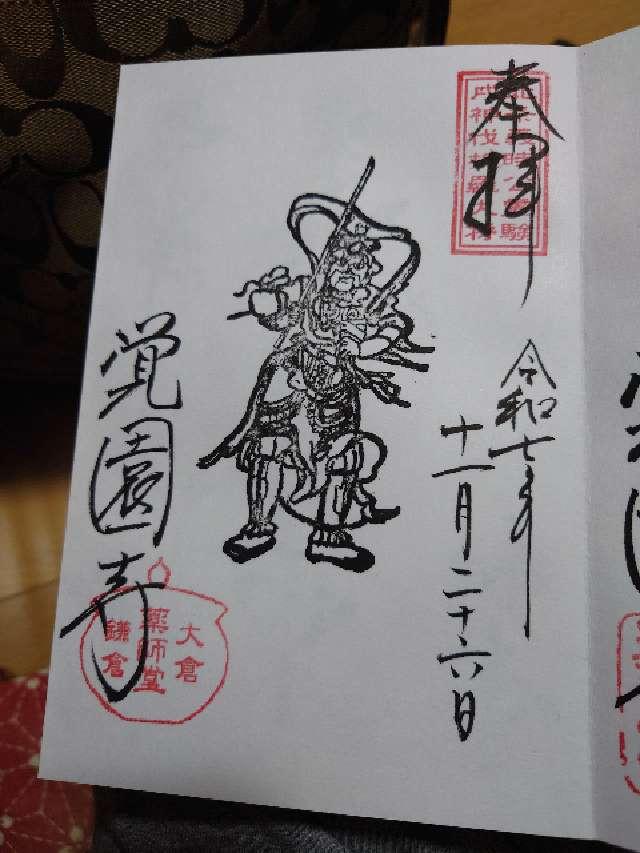 奉拝
令和七年
十一月二十六日
覚園寺
大倉
薬師堂
鎌倉